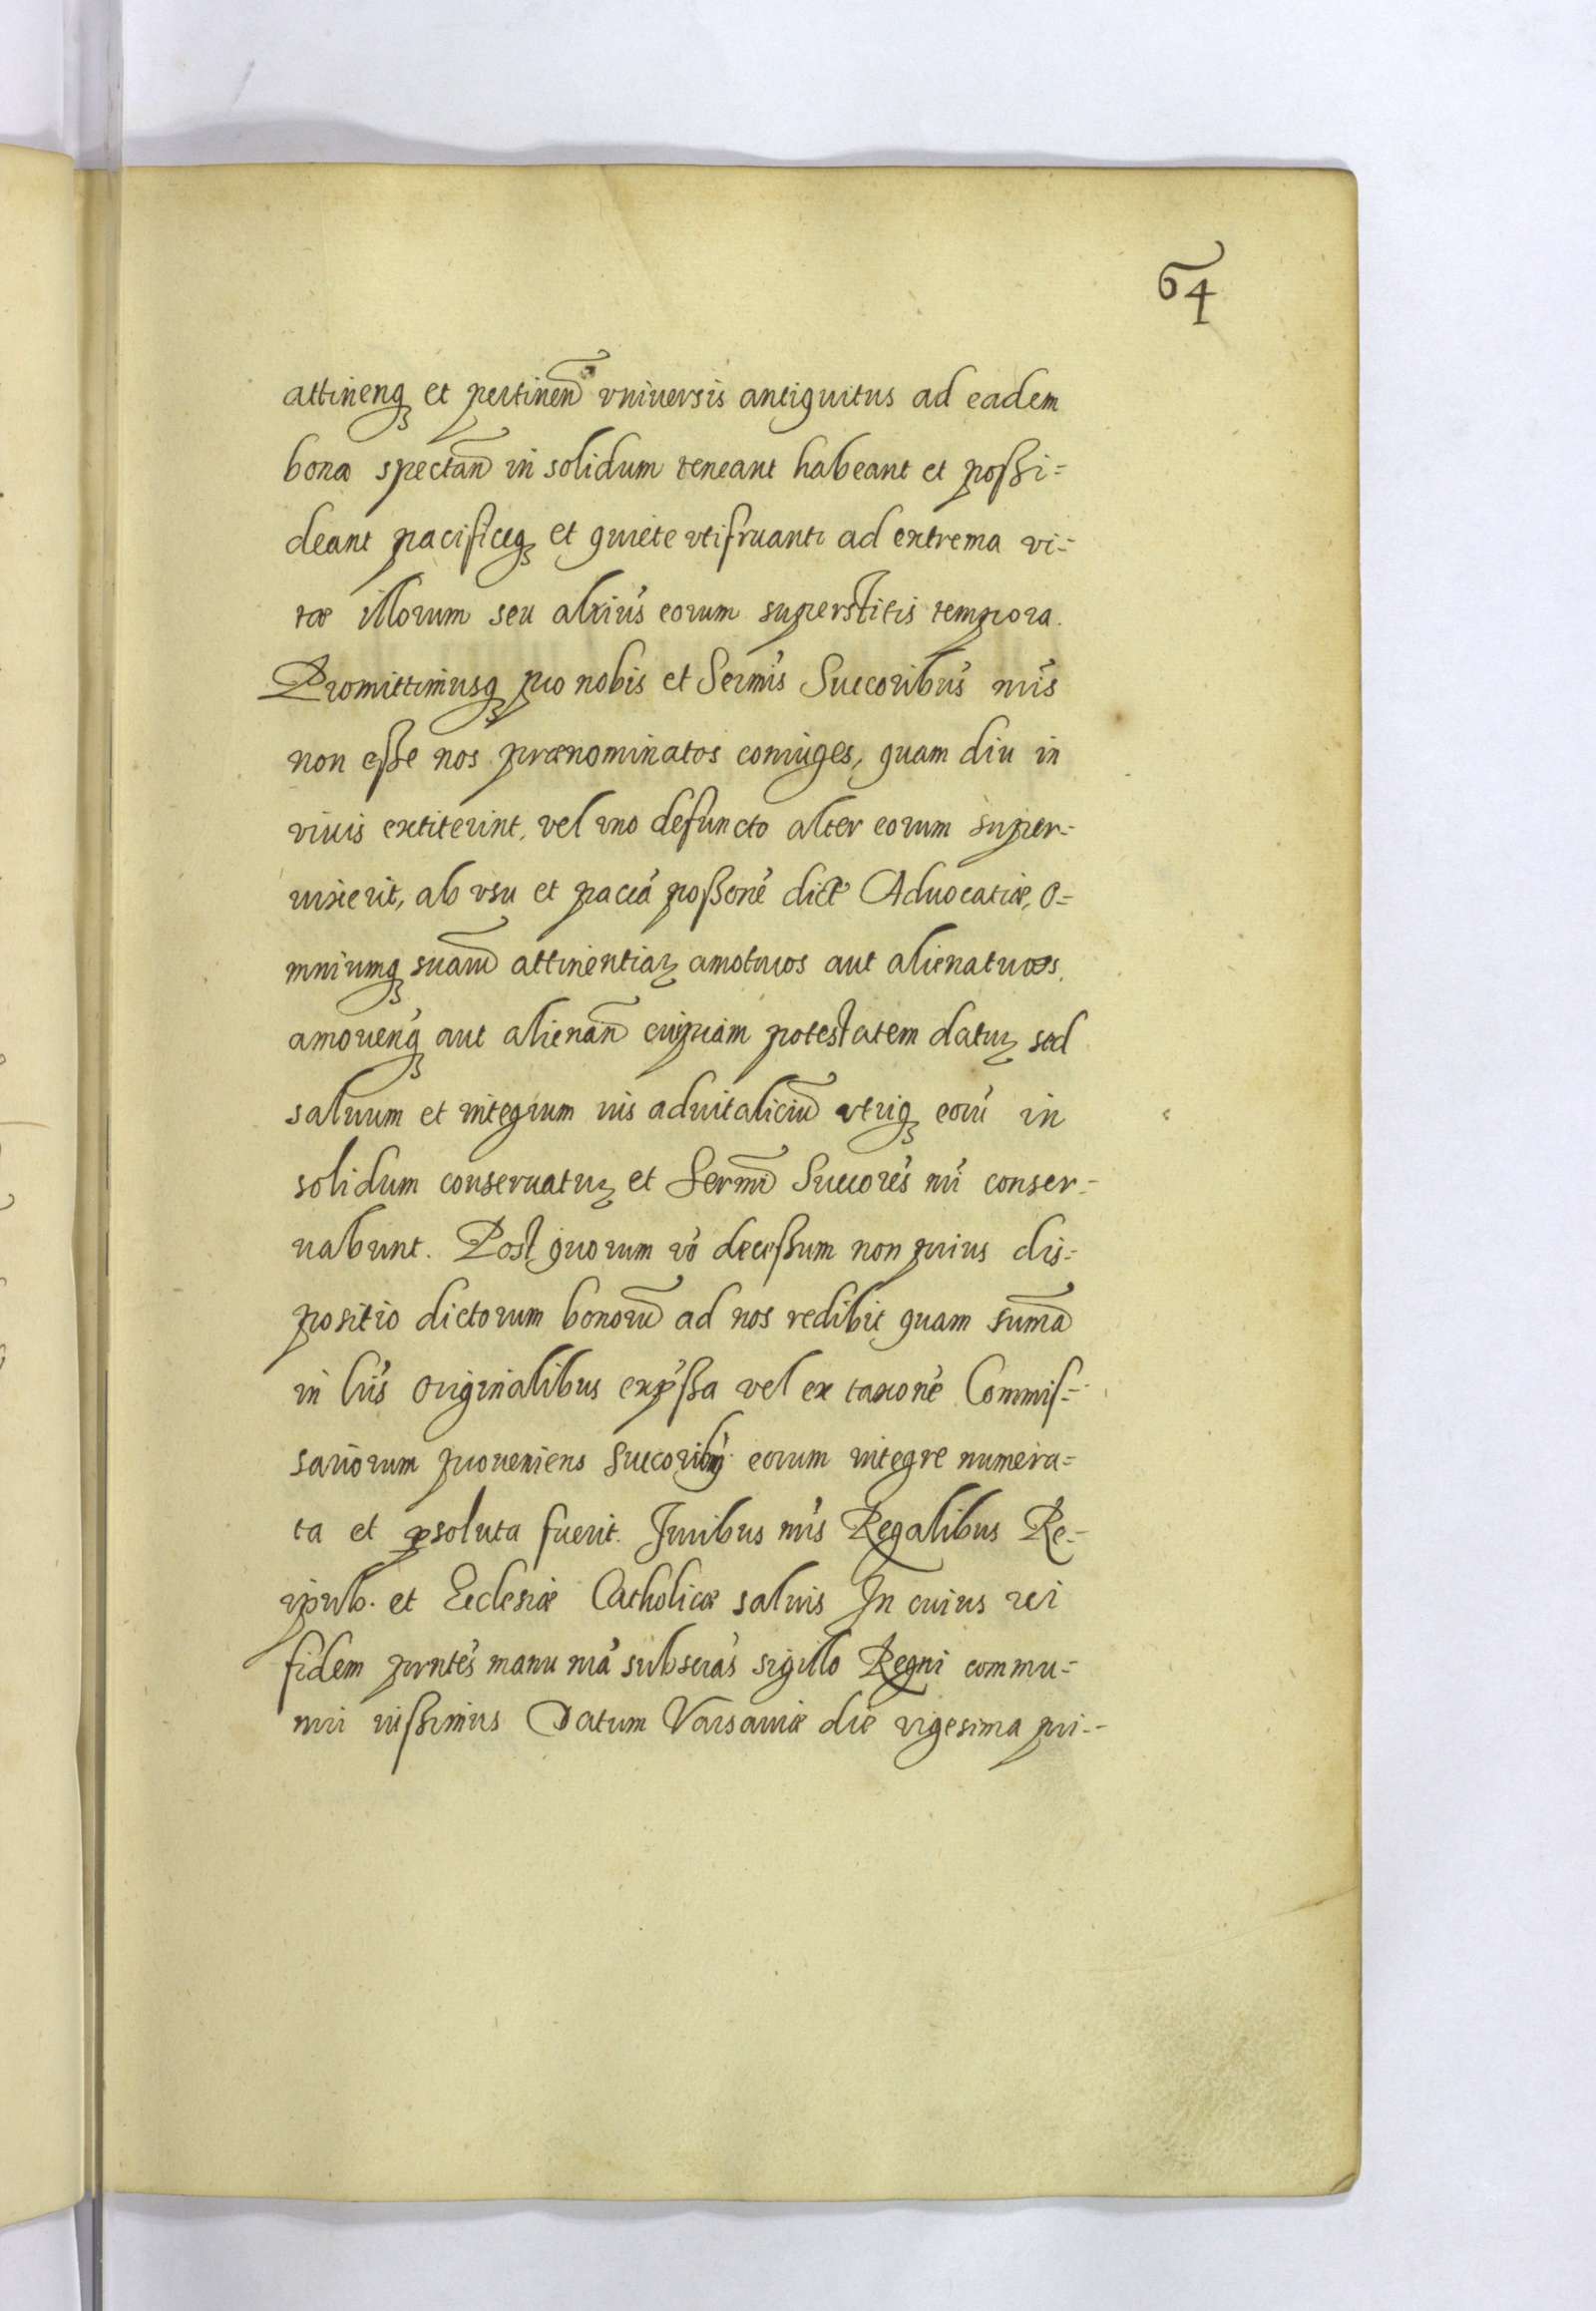 64
attineñq et pertineñ vniuersis antiquitus ad eadem
bona spectañ in solidum teneant habeant et possi=
deant pacificeq et quiete vtifruantr ad extrema vi=
tæ illorum seu altrius eorum superstitis tempora.
Promittimusq pro nobis et Sermis Succoribus nris
non esse nos prænominatos coniuges, quam diu in
viuis extiterint, vel vno defuncto alter eorum super=
uixerit, ab vsu et paccá possone dictæ Aduocatiæ, o=
mniumq suaru attinentiaꝝ amoturos aut alienaturos,
amoueñq aut alienañ cuipiam potestatem daturꝝ sed
saluum et integrum ius aduitaliciũ vtriq eorũ in
solidum conseruaturꝝ et Sermi Succores nri conser=
uabunt. Post quorum vo decessum non prius dis=
positio dictorum bonorũ ad nos redibit quam suma
in lris originalibus expssa vel ex taxone Commis=
sariorum proueniens Succoribus eorum integre numera=
ta et psoluta fuerit. Juribus nris Regalibus Re=
ipub. et Ecclesiæ Catholicæ saluis In cuius rei
fidem prntes manu nra subscras sigillo Regni commu=
niri iussimus Datum Varsauiæ die vigesima pri=